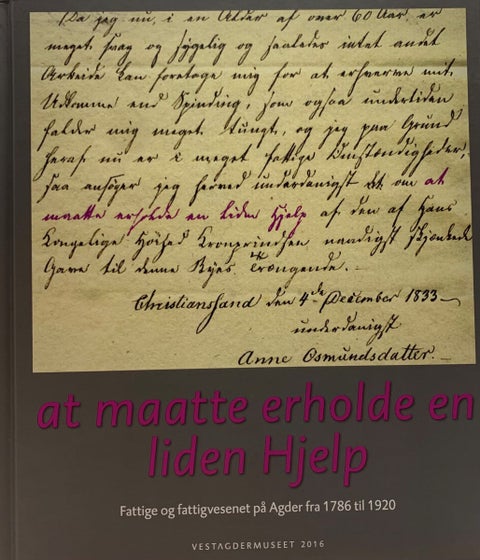 Da jeg nu, i en Alder af over 60 Aar, er
meget svag og sygelig og saaledes intet andet
Arbeide kan foretage mig for at erhverve mit
Udkomme end Spinding, som ogsaa undertiden
falder mig meget tungt, og jeg paa Grund
heraf nu er i meget fattige Omstændigheder,
saa ansøger jeg herved underdanigst om at
maatte erholde en liden Hjelp af den af Hans
Kongelige Høihed Kronprindsen naadigst skjenkede
Gave til denne Byes Trængende.
Christianssand den 4de December 1833
underdanigst
Anne Osmundsdatter.
at maatte erholde en
liden Hjelp
Fattige og fattigvesenet på Agder fra 1786 til 1920
VESTAGDERMUSEET 2016